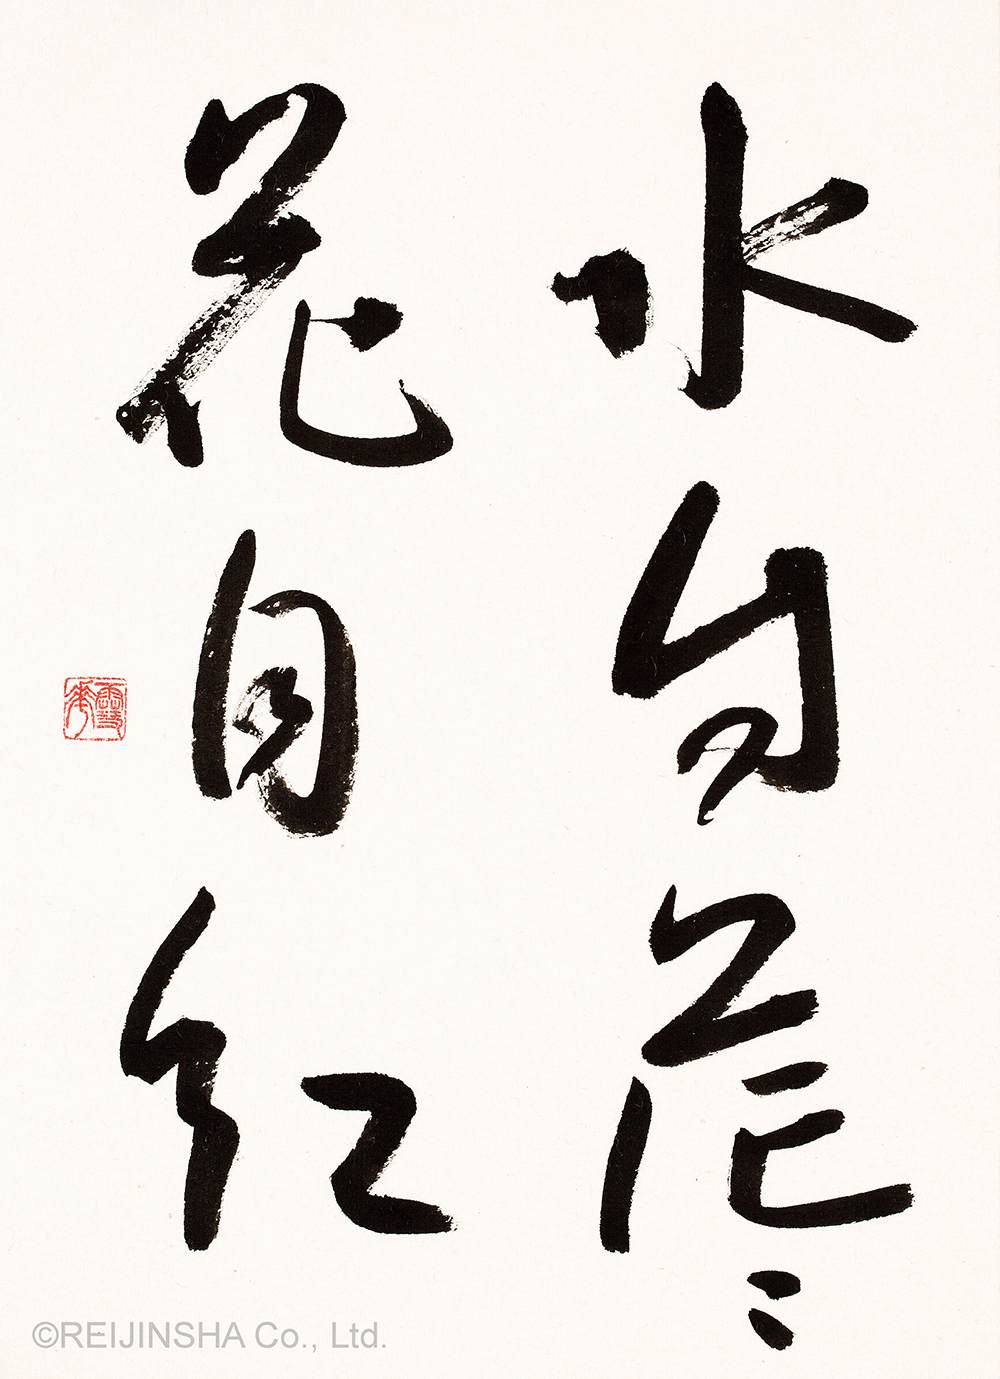 水自茫〻
花自紅
©REIJINSHA Co., Ltd.